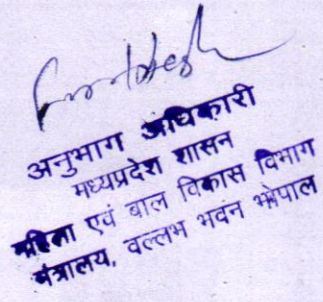 अनुभाग अधिकारी
मध्यप्रदेश शासन
महिला एवं बाल विकास विभाग
मंत्रालय, वल्लभ भवन भोपाल